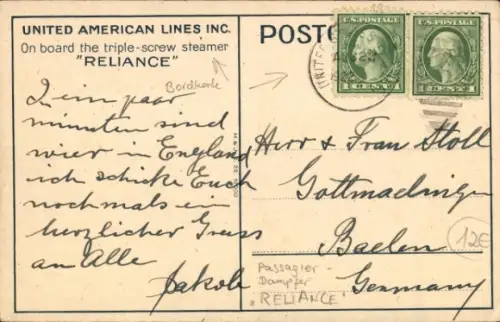 UNITED AMERICAN LINES INC.
On board the triple-screw steamer
"RELIANCE"
Bordkarte
In ein paar
minuten sind
wier in England
ich schicke Euch
nochmals ein
herzlicher Gruss
an Alle
Jakob
POSTC
U.S. POSTAGE
1 CENT 1
U.S. POSTAGE
1 CENT 1
UNITE
Herr & Frau Stoll
Gottmadingen
Baden
Germany
12E
Passagier-
Dampfer
"RELIANCE"